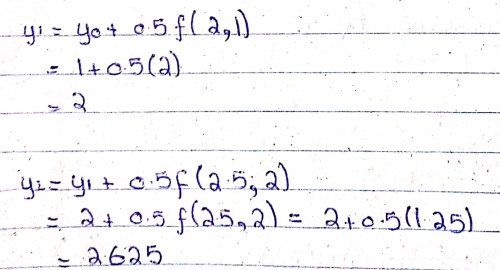 y1 = y0 + 0.5 f(2,1)
= 1 + 0.5(2)
= 2
y2 = y1 + 0.5f(2.5, 2)
= 2 + 0.5 f(2.5, 2) = 2 + 0.5(1.25)
= 2.625